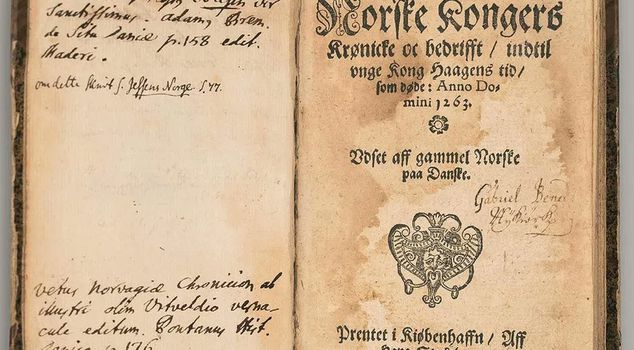 Sanctissimus. Adam. Brem.
de Situ Daniæ p. 158 edit.
Maderi.
om dette skrift s. Jessens Norge S. 77.
vetus Norvagiæ Chronicon ab
illustri olim Vitveldio verna-
cule editum. Pontanus Hist.
Norske Kongers
Krønicke oc bedrifft / indtil
vnge Kong Haagens tid /
som døde: Anno Do-
mini 1263.
Vdset aff gammel Norske
paa Danske.
Gabriel
Prentet i Kiøbenhaffn / Aff